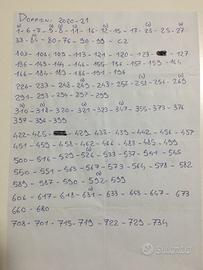 DOPPIONI 2020-21
1-6-7-9-8-11-16-12-15-17-23-25-27
33-81-80-76-90-99-C2
103-108-109-113-121-120-123-127
136-143-144-146-155-156-157-159-164
166-184-183-186-191-196
228-233-238-251-258-269
291-293-294-297-299
310-318-320-321-347-355-373-376
397-398-399
422-425-429-433-435-442-456-457
451-459-458-462-468-483-485-499
500-516-529-526-533-537-541-545
550-551-563-557-573-564-578-582
589-587-590-592-599
606-617-618-631-633-643-647-673
660-680
708-701-715-719-722-729-734
subito